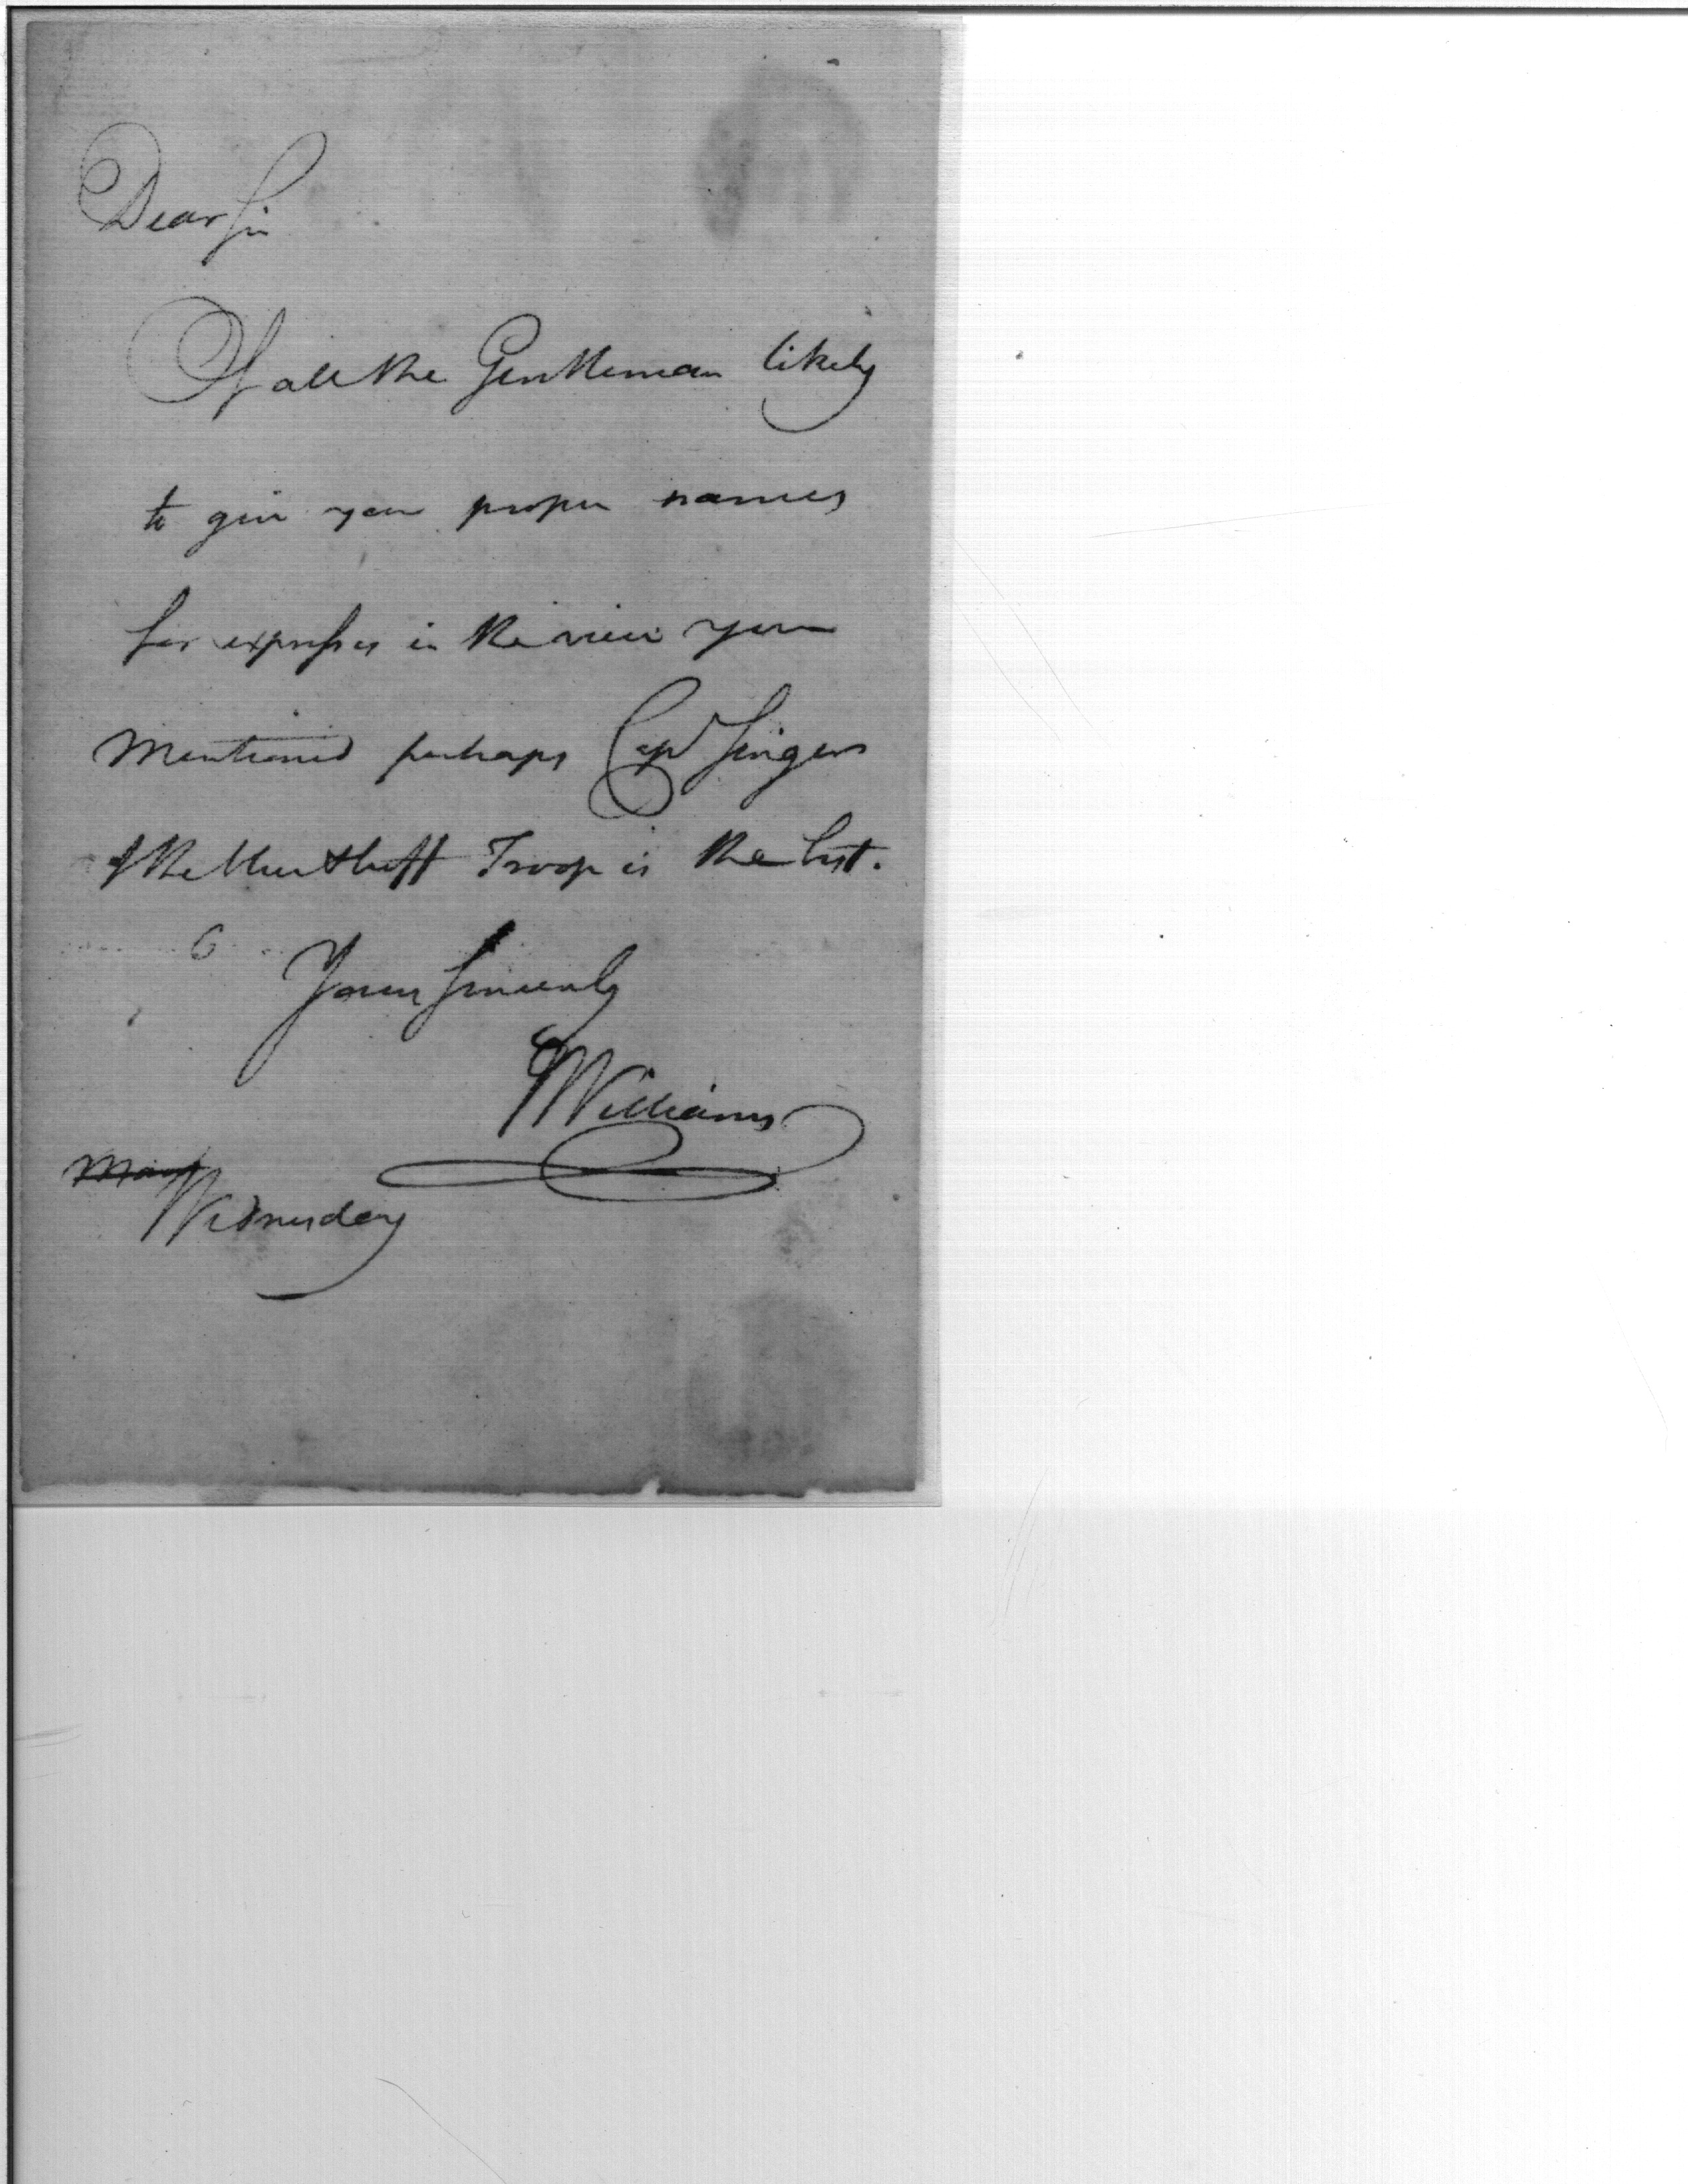 Dear Sir
Of all the Gentleman likely
to give you proper names
for expresses in the view you
mentioned perhaps Capt Singer
of the Troop is the best.
Yours Sincerely
Williams
Wednesday